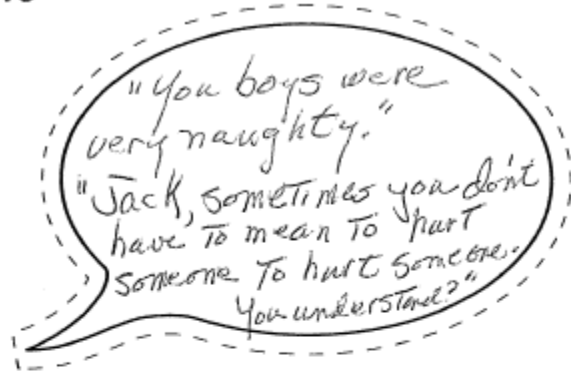 "You boys were
very naughty."
"Jack, sometimes you don't
have to mean to hurt
someone to hurt someone.
You understand?"